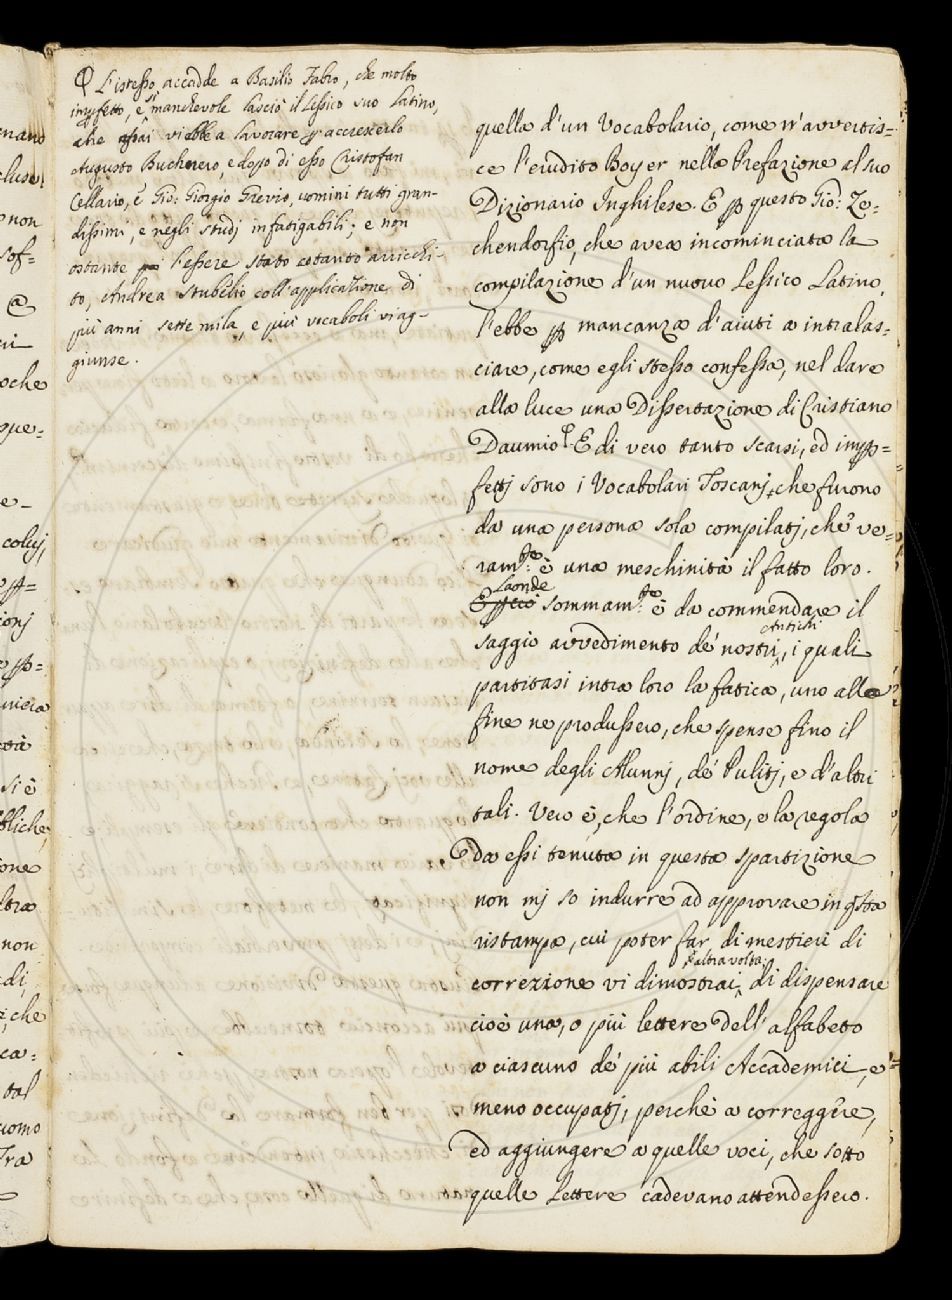 L'istesso accadde a Basilio Fabro, che molto
imperfetto, e sì manchevole lasciò il Lessico suo Latino,
che assai viebbe a lavorare p accrescerlo
Augusto Buchnero, e doppo di esso Cristofan
Cellario, e Gio: Giorgio Grevio, uomini tutti gran-
dissimi, e negli studj infatigabili; e non
ostante l'essere stato cotanto arricchi-
to, Andrea Stubelio coll'applicazione di
più anni sette mila, e più vocaboli vi ag-
giunse.
quella d'un Vocabolario, come n'avvertis=
ce l'erudito Boyer nella Prefazione al suo
Dizionario Inghilese. E p questo Gio: Ze=
chendorfio, che avea incominciata la
compilazione d'un nuovo Lessico Latino,
l'ebbe p mancanza d'aiuti a intralas=
ciare, come egli stesso confessa, nel dare
alla luce una Dissertazione di Cristiano
Daumio. E di vero tanto scarsi, ed imp=
fettj sono i Vocabolari Toscanj, che furono
da una persona sola compilatj, che ve=
ram.te è una meschinità il fatto loro.
Laonde
E pciò sommam.te è da commendare il
Antichi
saggio avvedimento de' nostri, i quali
partitasi intra loro la fatica, uno alla
fine ne produssero, che spense fino il
nome degli Alunnj, de' Pulitj, e d'altri
tali. Vero è, che l'ordine, e la regola
da essi tenuta in questa spartizione
non mj so indurre ad approvare in qsta
ristampa, cui poter far di mestieri di
l'altra volta
correzione vi dimostrai, di dispensare
cioè una, o più lettere dell'alfabetto
a ciascuno de' più abili Accademici, e
meno occupatj, perchè a correggere,
ed aggiungere a quelle voci, che sotto
quelle Lettere cadevano attendessero.